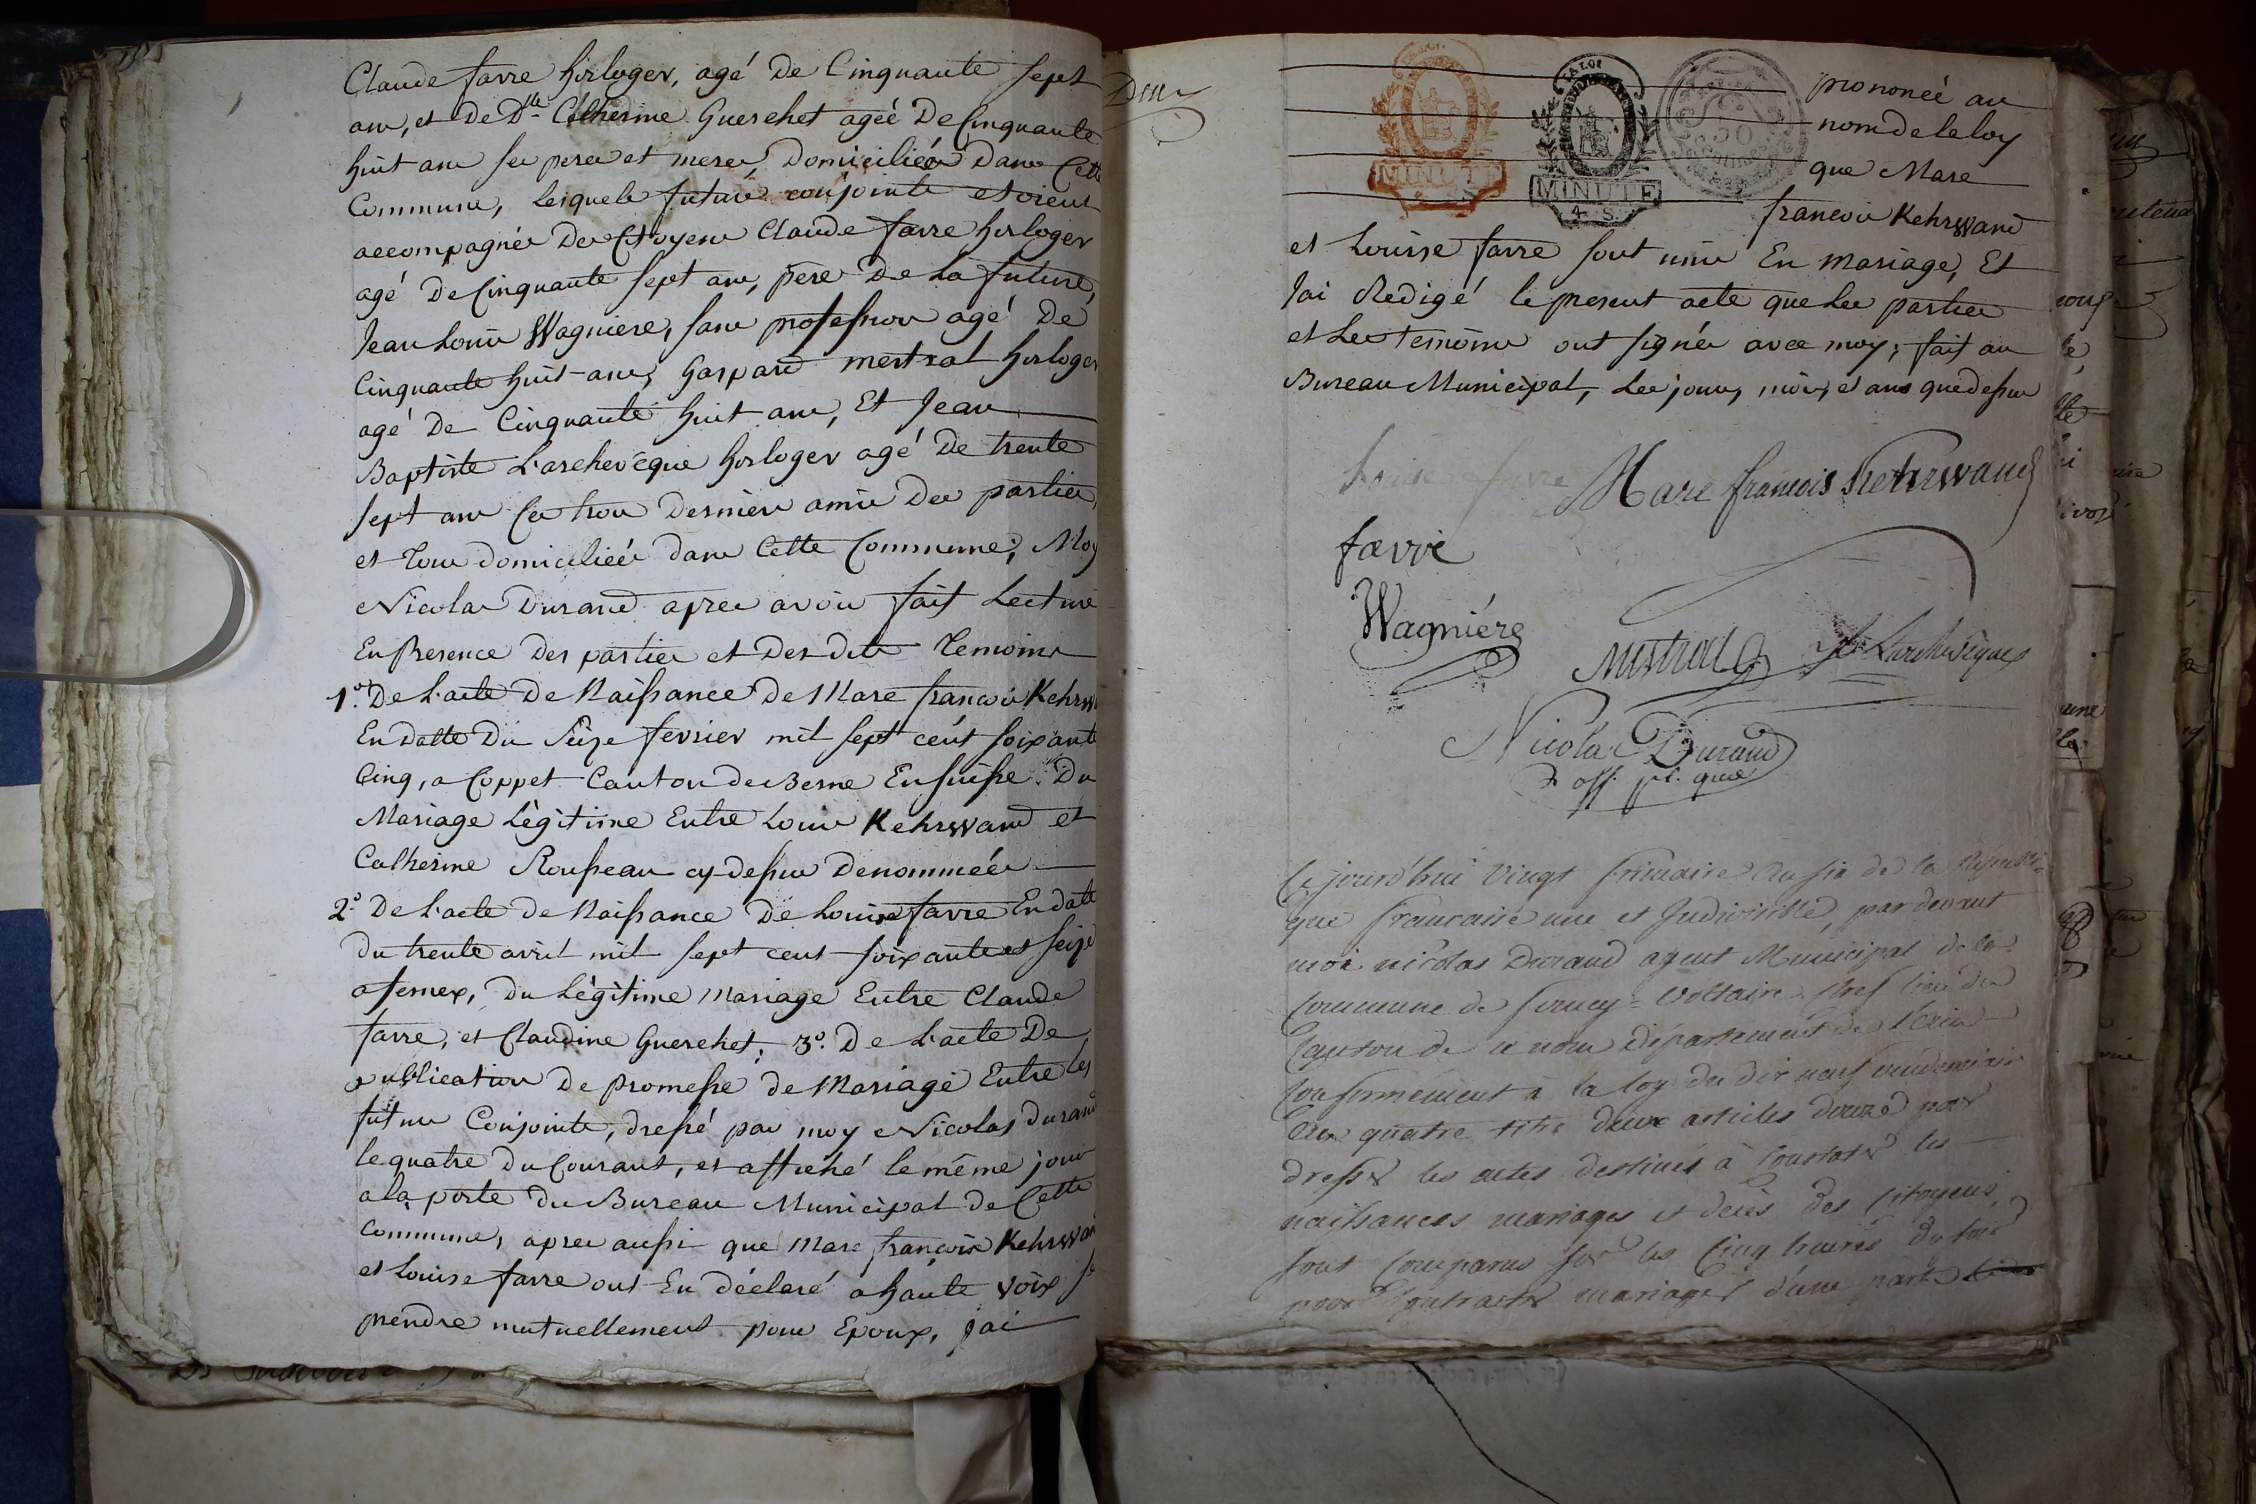 Claude favre horloger, agé De Cinquante sept
ans, et De Dlle Catherine Guerchet ageé De Cinquante
huit ans ses peres et meres, Domiciliés Dans Cette
Commune, lesquels futurs conjoints etoient
accompagnés Des Citoyens Claude favre horloger
agé De Cinquante sept ans, père De La future,
Jean Louis Wagniere, sans profession agé De
Cinquante huit ans, Gaspard mestral horloger
agé De Cinquante huit ans, Et Jean
Baptiste L'archevêque horloger agé De trente
sept ans Ces trois Derniers amis Des parties,
et Tous domiciliés dans Cette Commune; Moy
Nicolas Durand apres avoir fait Lecture
En Presence Des parties et Des dits Temoins
1.o De L'acte De Naissance De Marc francois Kehrw
En Datte Du Seize fevrier mil sept cent soixante
Cinq, a Coppet Canton de Berne En suisse Du
Mariage Légitime Entre Louis Kehrwand et
Catherine Rousseau cy-dessus Denommés
2.o De L'acte de Naissance De Louise favre En date
du trente avril mil sept cent soixante et seize
a fernex, Du Légitime Mariage Entre Claude
favre, et Claudine Guerchet; 3.o De L'acte De
publication De promesse de Mariage Entre les
futurs Conjoints, dressé par moy Nicolas Durand
le quatre Du Courant, et affiché le même jour
a la porte du Bureau Municipal De Cette
Commune, apres aussi que Marc françois Kehrwan
et Louise favre ont En déclaré a haute voix se
prendre mutuellement pour Epoux, j'ai
MINUTE
4. S.
LA LOI
MINUTE
4. S.
50
prononcé au
nom de la loy
que Marc
francois Kehrwand
et Louise favre sont unis En mariage, Et
J'ai Redigé le present acte que Les parties
et Les temoins ont signés avec moy; fait au
Bureau Municipal, Les jours, mois, et ans que dessus
Louise favre Marc françois Kehrwand
favre
Wagniére
Mestral G JB Larchevêque
Nicolas Durand
off. p. que
Cejourd'hui vingt frimaire an six de la Républi=
que francaise une et Indivisible, par devant
moi nicolas Durand agent Municipal de la
Commune de ferney=Voltaire chef lieu du
Canton de ce nom Département de l'ain
Conformément à la loy du dix neuf vendemiaire
an quatre titre deux articles douze pour
dresser les actes destinés à Constater les
naissances mariages et décès des Citoyens,
sont Comparus sur les Cinq heures du soir
pour Contracter mariages d'une part